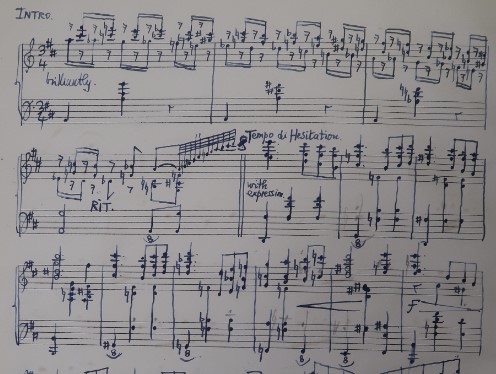 INTRO.
brilliantly.
Tempo di Hesitation.
with
expression
RIT.